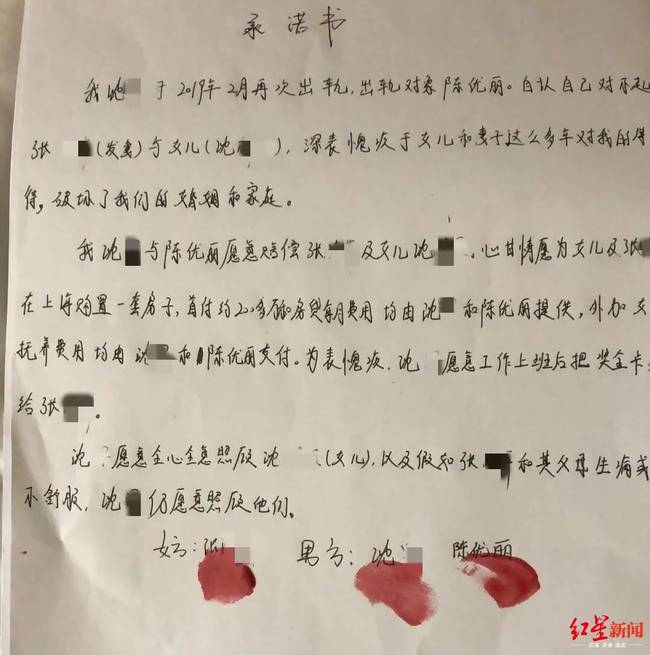 承诺书
我沈 于2019年2月再次出轨,出轨对象陈优丽。自认自己对不起
张 (发妻)与女儿(沈 ),深表愧疚于女儿和妻子这么多年对我的
待,破坏了我们的婚姻和家庭。
我沈 与陈优丽愿意赔偿张 及女儿沈 。心甘情愿为女儿及张
在上海购置一套房子,首付约200多万和房贷每月费用均由沈 和陈优丽提供,外加女
抚养费用均由沈 和陈优丽支付。为表愧疚,沈 愿意工作上班后把奖金卡
给张 。
沈 愿意全心全意照顾沈 (女儿),以及假如张 和其父母生病或
不舒服,沈 仍愿意照顾他们。
女方:张 男方:沈 陈优丽
红星新闻